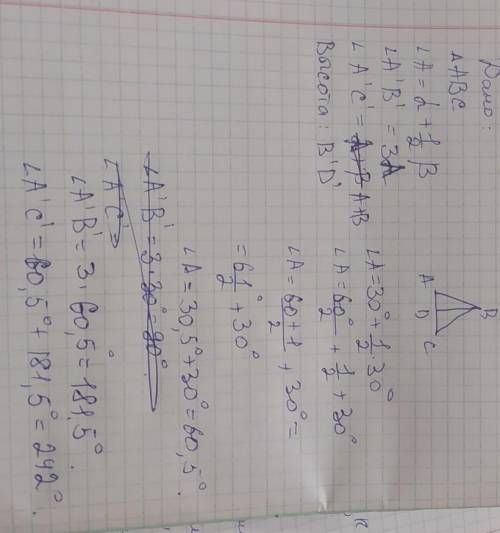 Дано:
∆ABC
∠A = α + 1/2 β
∠A'B' = 3A
∠A'C' = A+B A+B
Высота: B'D'
B
A D C
∠A = 30° + 1/2 · 30°
∠A = 60°/2 + 1/2 + 30°
∠A = 60+1/2 + 30° =
= 61/2° + 30°
∠A = 30,5° + 30° = 60,5°.
∠A'B' = 3 · 30° = 90°
∠A'C' =
∠A'B' = 3 · 60,5° = 181,5°.
∠A'C' = 60,5° + 181,5° = 242°.